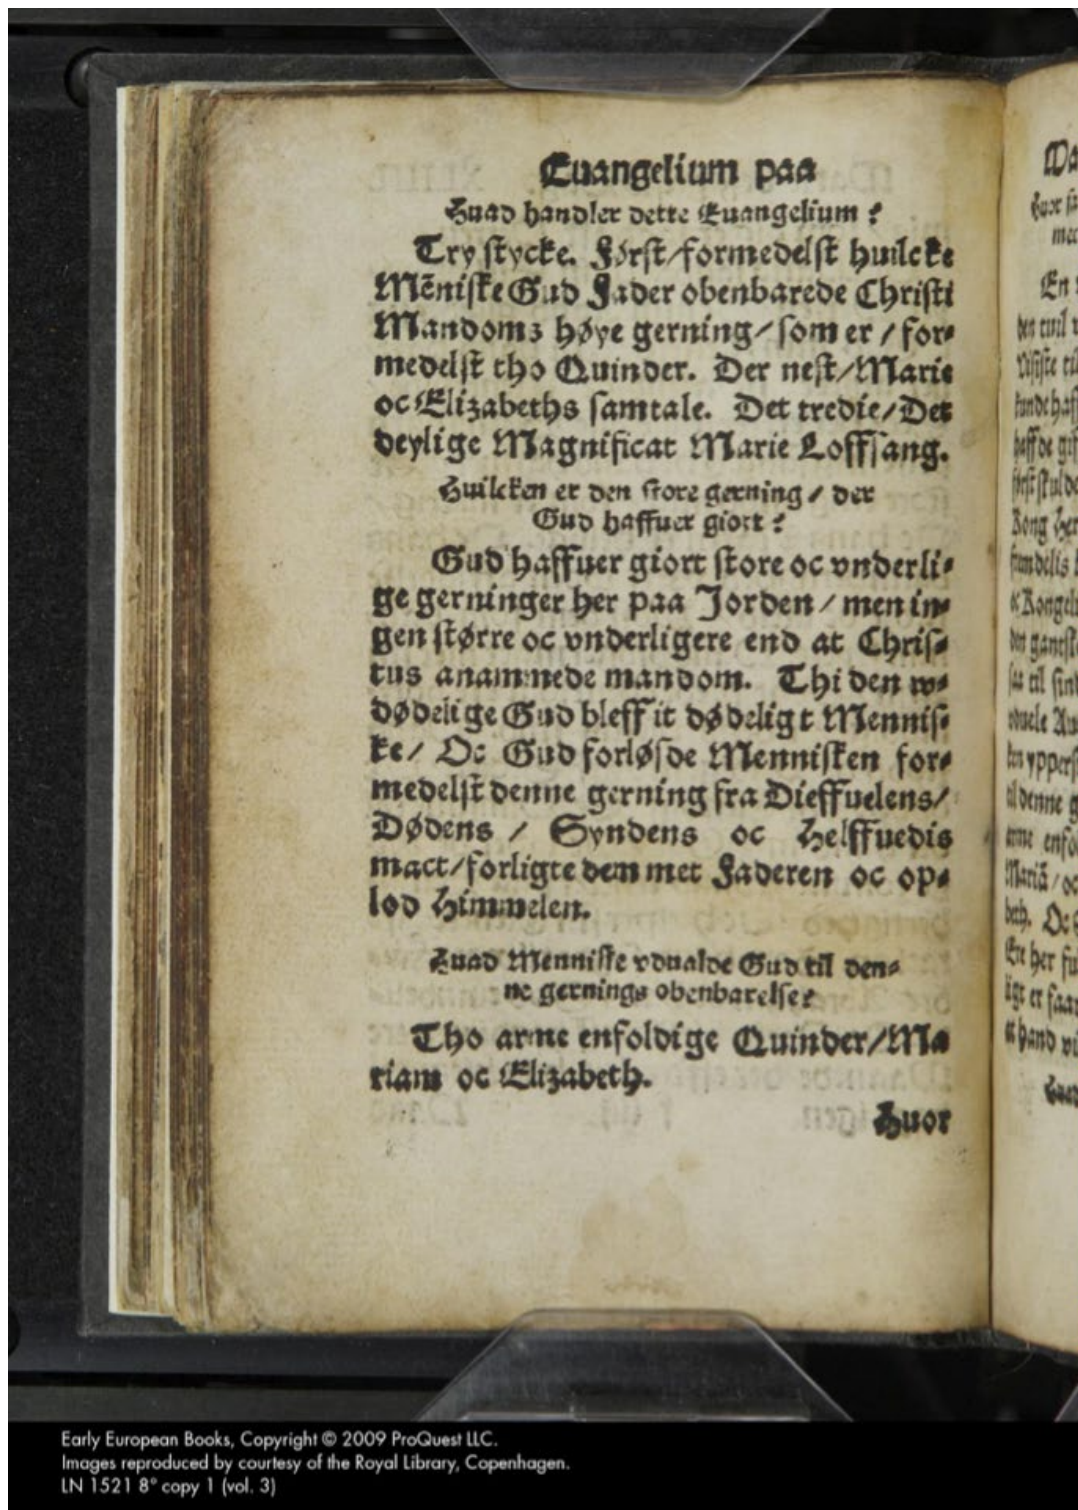 Euangelium paa
Huad handler dette Euangelium?
Try stycke. Først/formedelst huilcke
Mēniske Gud Fader obenbarede Christi
Mandoms høye gerning/som er/for⸗
medelst tho Quinder. Der nest/Marie
oc Elizabeths samtale. Det tredie/Det
deylige Magnificat Marie Loffsang.
Huilcken er den store gerning/der
Gud haffuer giort?
Gud haffuer giort store oc vnderli⸗
ge gerninger her paa Jorden/men in⸗
gen større oc vnderligere end at Chris⸗
tus anammede mandom. Thi den w⸗
dødelige Gud bleff it dødeligt Mennis⸗
ke/Oc Gud forløsde Mennisken for⸗
medelst denne gerning fra Dieffuelens/
Dødens/Syndens oc Helffuedis
mact/forligte dem met Faderen oc op⸗
lod Himmelen.
Huad Menniske vdualde Gud til den⸗
ne gernings obenbarelse?
Tho arme enfoldige Quinder/Ma
riam oc Elizabeth.
Huor
En
Kong
til denne
arme
Mariā/oc
beth. Oc
her
at hand
Early European Books, Copyright © 2009 ProQuest LLC.
Images reproduced by courtesy of the Royal Library, Copenhagen.
LN 1521 8° copy 1 (vol. 3)